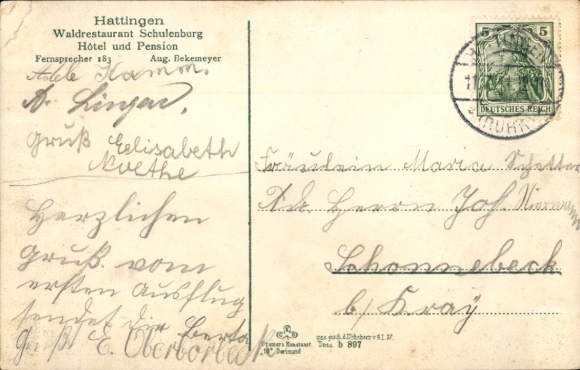 Hattingen
Waldrestaurant Schulenburg
Hôtel und Pension
Fernsprecher 183 Aug. Bekemeyer
Adele Kamm.
A. Lingen,
Gruß Eelisabeth
Noethe
Herzlichen
Gruß vom
ersten Ausflug
sendet dir Berta
Gruß E. Oberborbeck
5 5
HATTINGEN
(RUHR)
DEUTSCHES REICH
Fräulein Maria
Adr. Herrn Joh.
Schonnebeck
b/ Kray
Dortmund
b 897